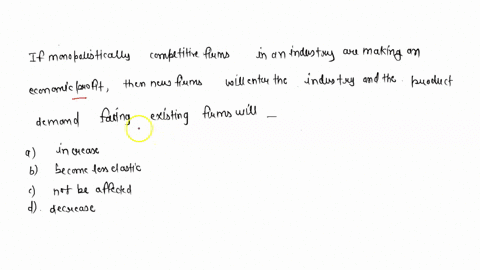 If monopolistically competitive firms in an industry are making an
economic profit, then new firms will enter the industry and the product
demand facing existing firms will _
a) increase
b) become less elastic
c) not be affected
d). decrease